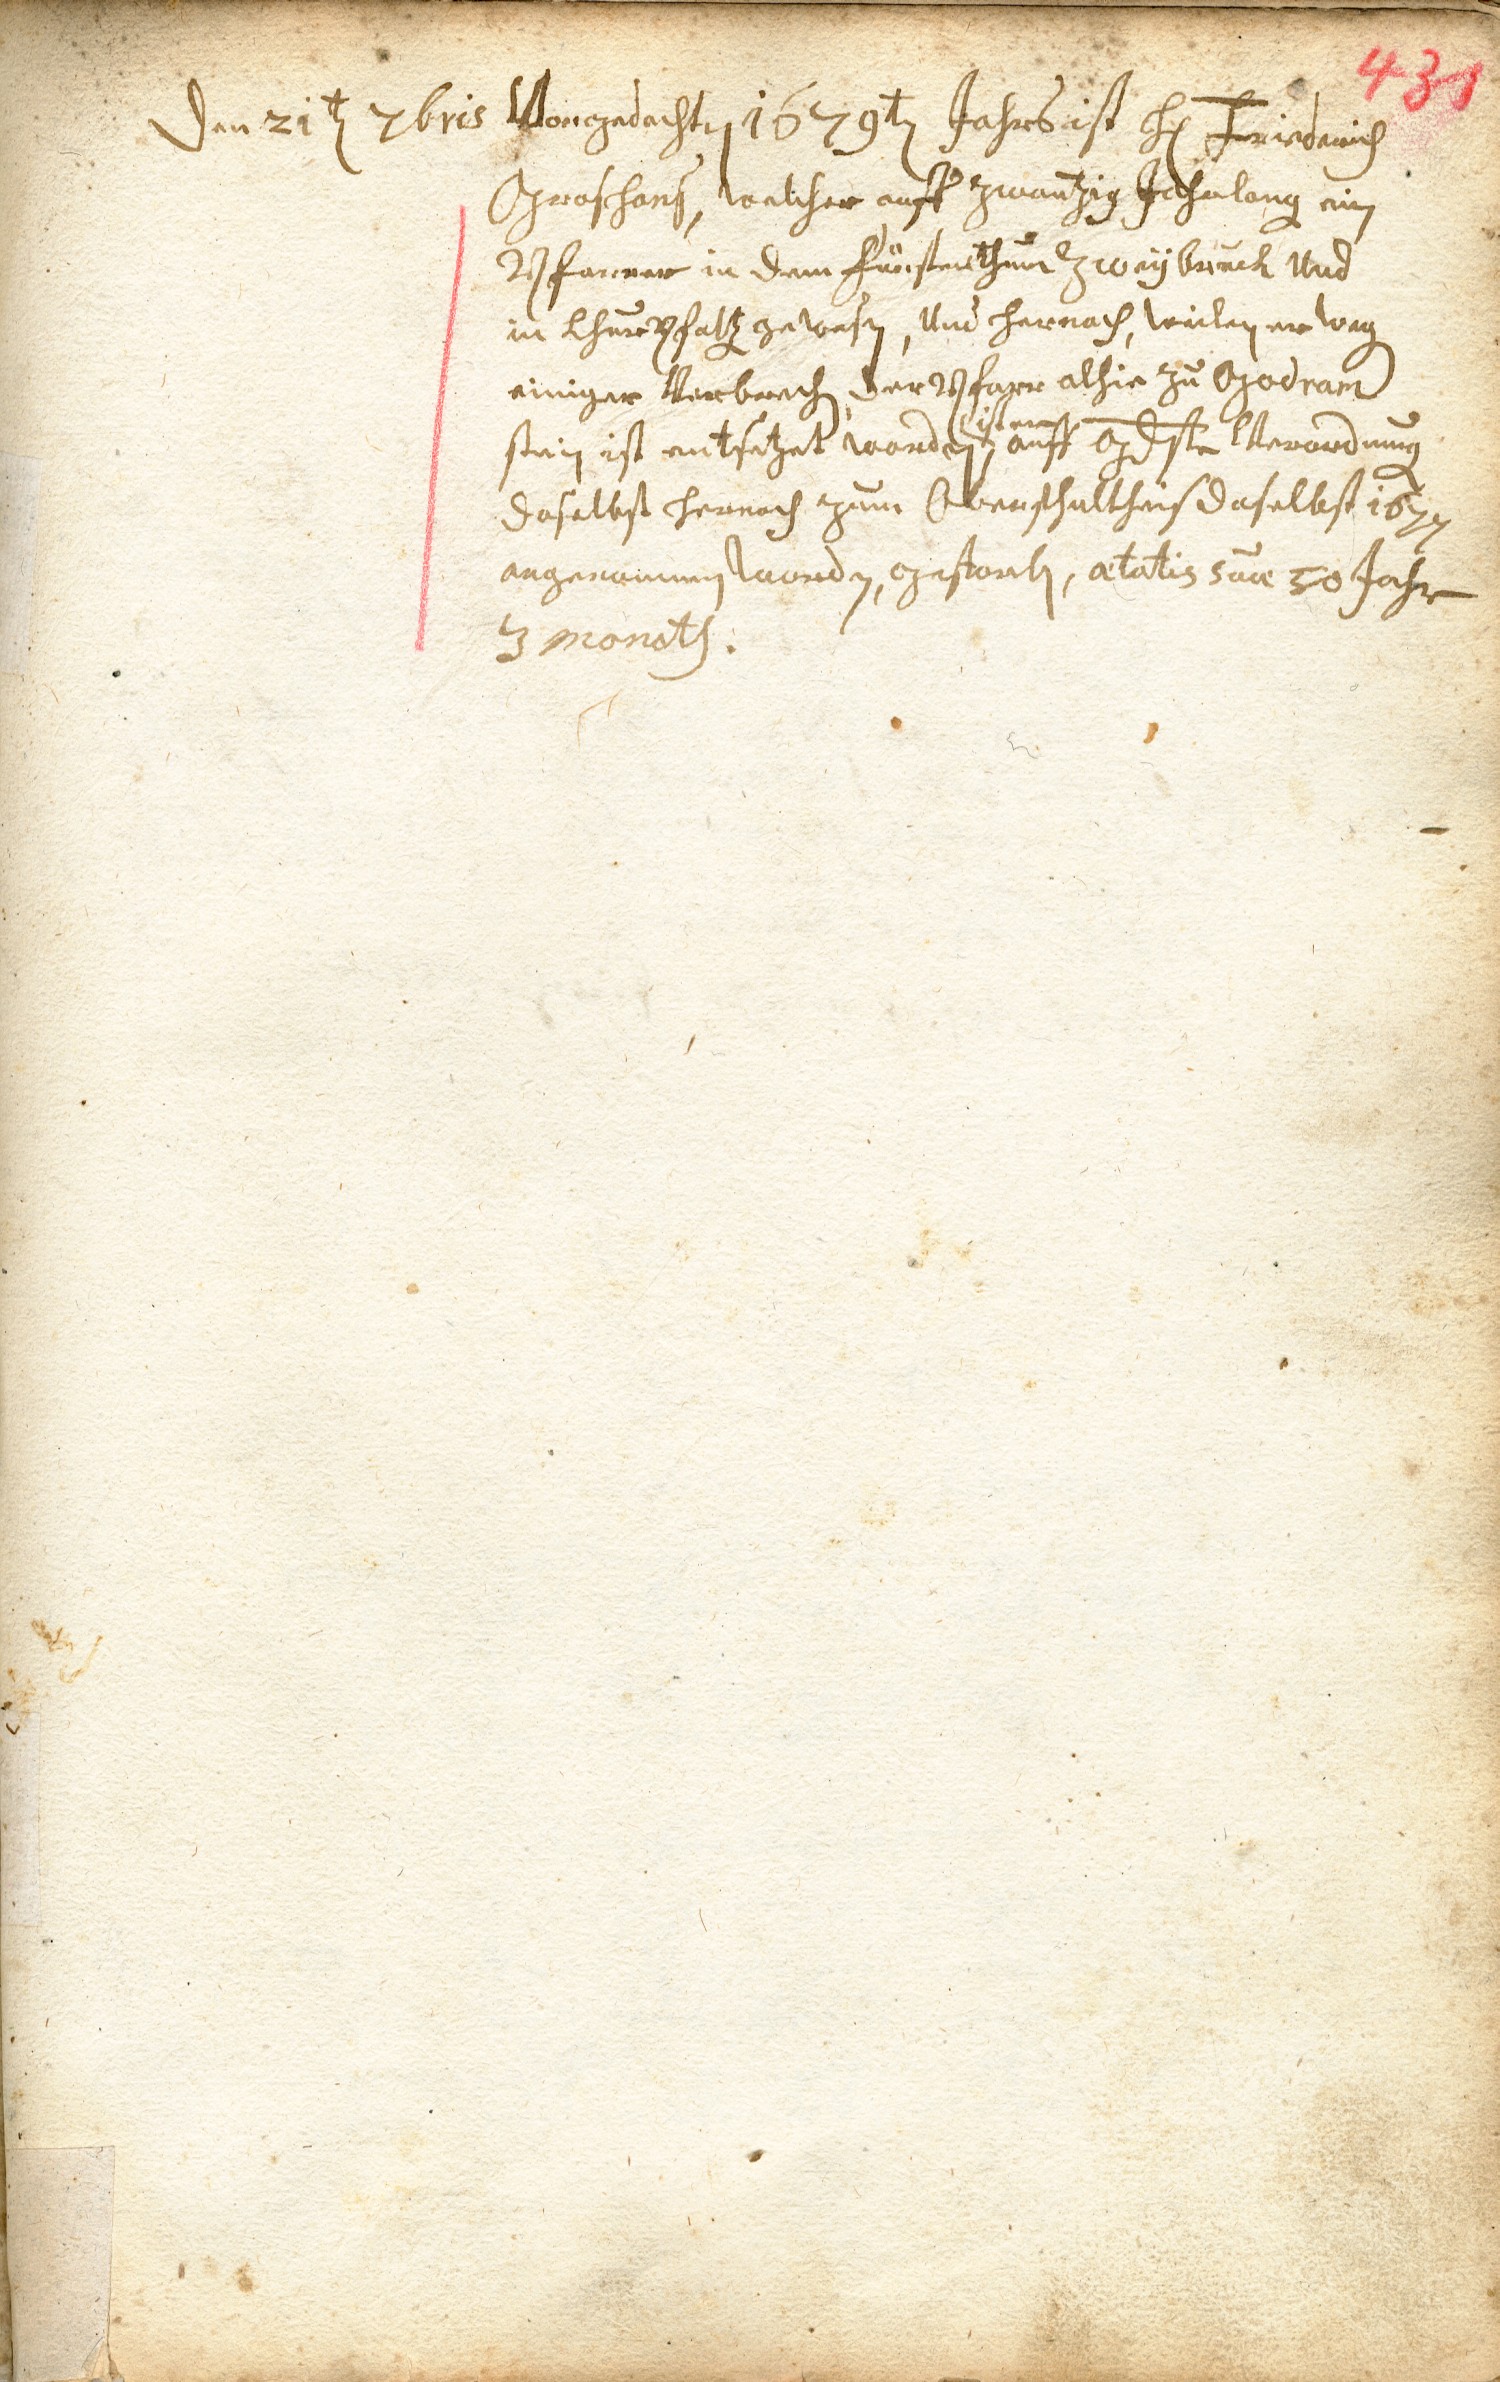 438
Den 21t. 7bris Vorgedachten 1679ten Jahrs ist H. Friederich
Groshans, welcher auff zwantzig Jahrlang ein
Pfarrer in dem Fürstenthum Zweybruck Und
in ChurPfaltz gewesen, Und hernach, weilen er weg
einiger Verbrechen der Pfarr alhie zu Godram
stein ist entsetzet worden, ist er auff Gdste Verordnung
daselbst hernach zum Oberschultheis daselbst 1677
angenommen worden, gestorben, ætatis suæ 50 Jahr
3 Monath.